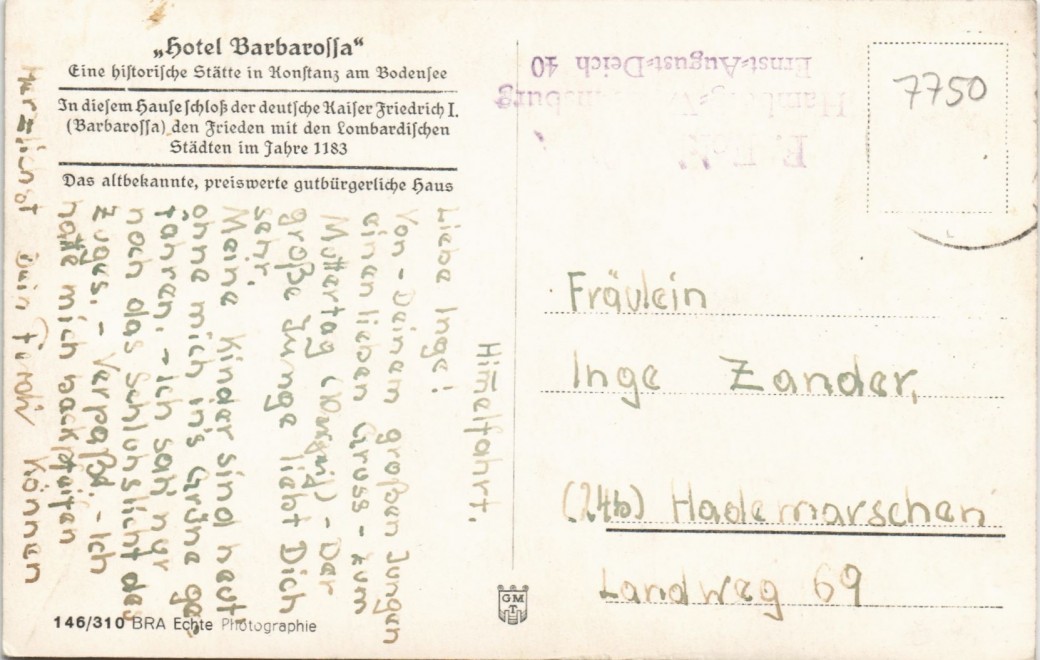 „Hotel Barbarossa“
Eine historische Stätte in Konstanz am Bodensee
In diesem Hause schloß der deutsche Kaiser Friedrich I.
(Barbarossa) den Frieden mit den Lombardischen
Städten im Jahre 1183
Das altbekannte, preiswerte gutbürgerliche Haus
Him̄elfahrt.
Liebe Inge!
Von - Deinem großen Jungen
einen lieben Gruss - zum
Muttertag - Der
große Junge liebt Dich
sehr.
Meine Kinder sind heut,
ohne mich in's Grüne ge-
fahren. - Ich sah nur
noch das Schluhslicht des
Zuges. - Verpaßd - Ich
hätte mich backpfeifen
können
Herzlichst Dein
146/310 BRA Echte Photographie
GM
Ernst-August-Deich 40
7750
Fräulein
Inge Zander,
(24b) Hademarschen
Landweg 69